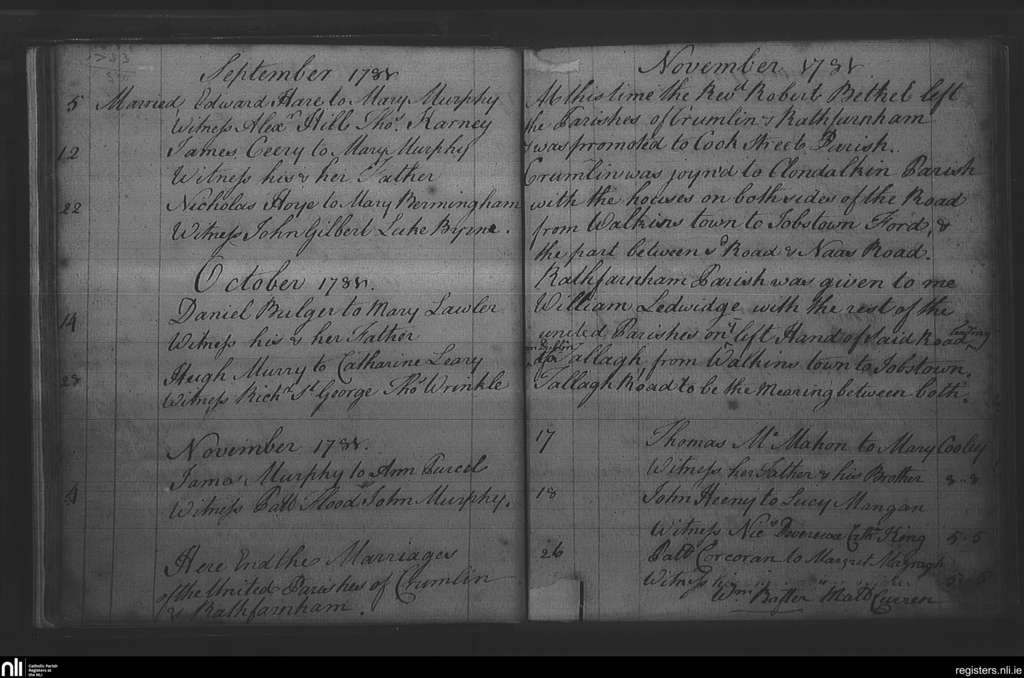 September 1781
5 Married Edward Hare to Mary Murphy
Witness Alexr Hill Thos. Karney
12 James Ceery to Mary Murphy
Witness his & her Father
22 Nicholas Hoye to Mary Bermingham
Witness John Gilbert Luke Byrne.
October 1781.
14 Daniel Bulger to Mary Lawler
Witness his & her Father
28 Hugh Murry to Catharine Leary
Witness Richd St. George Thos Wrinkle
November 1781.
James Murphy to Ann Purcel
4 Witness Patt Flood John Murphy.
Here End the Marriages
of the United Parishes of Crumlin
& Rathfarnham.
November 1781
At this time the Revd Robert Bethel left
the Parishes of Crumlin & Rathfurnham
& was promoted to Cook Street Parish.
Crumlin was joyn'd to Clondalkin Parish
with the houses on both sides of the Road
from Walkins town to Jobstown Ford, &
the part between sd Road & Naas Road.
Rathfarnham Parish was given to me
William Ledwidge with the rest of the
united Parishes on left Hand of said Road leading
from Dublin to Tallagh from Walkins town to Jobstown.
Tallagh Road to be the Mearing between both.
17 Thomas Mc Mahon to Mary Cooley
Witness her Father & his Brother 8-8
18 John Heeny to Lucy Mangan
Witness Nics King 5-5
26 Patt Corcoran to Margret Magragh
Witness 5-5
Wm Matt Curren